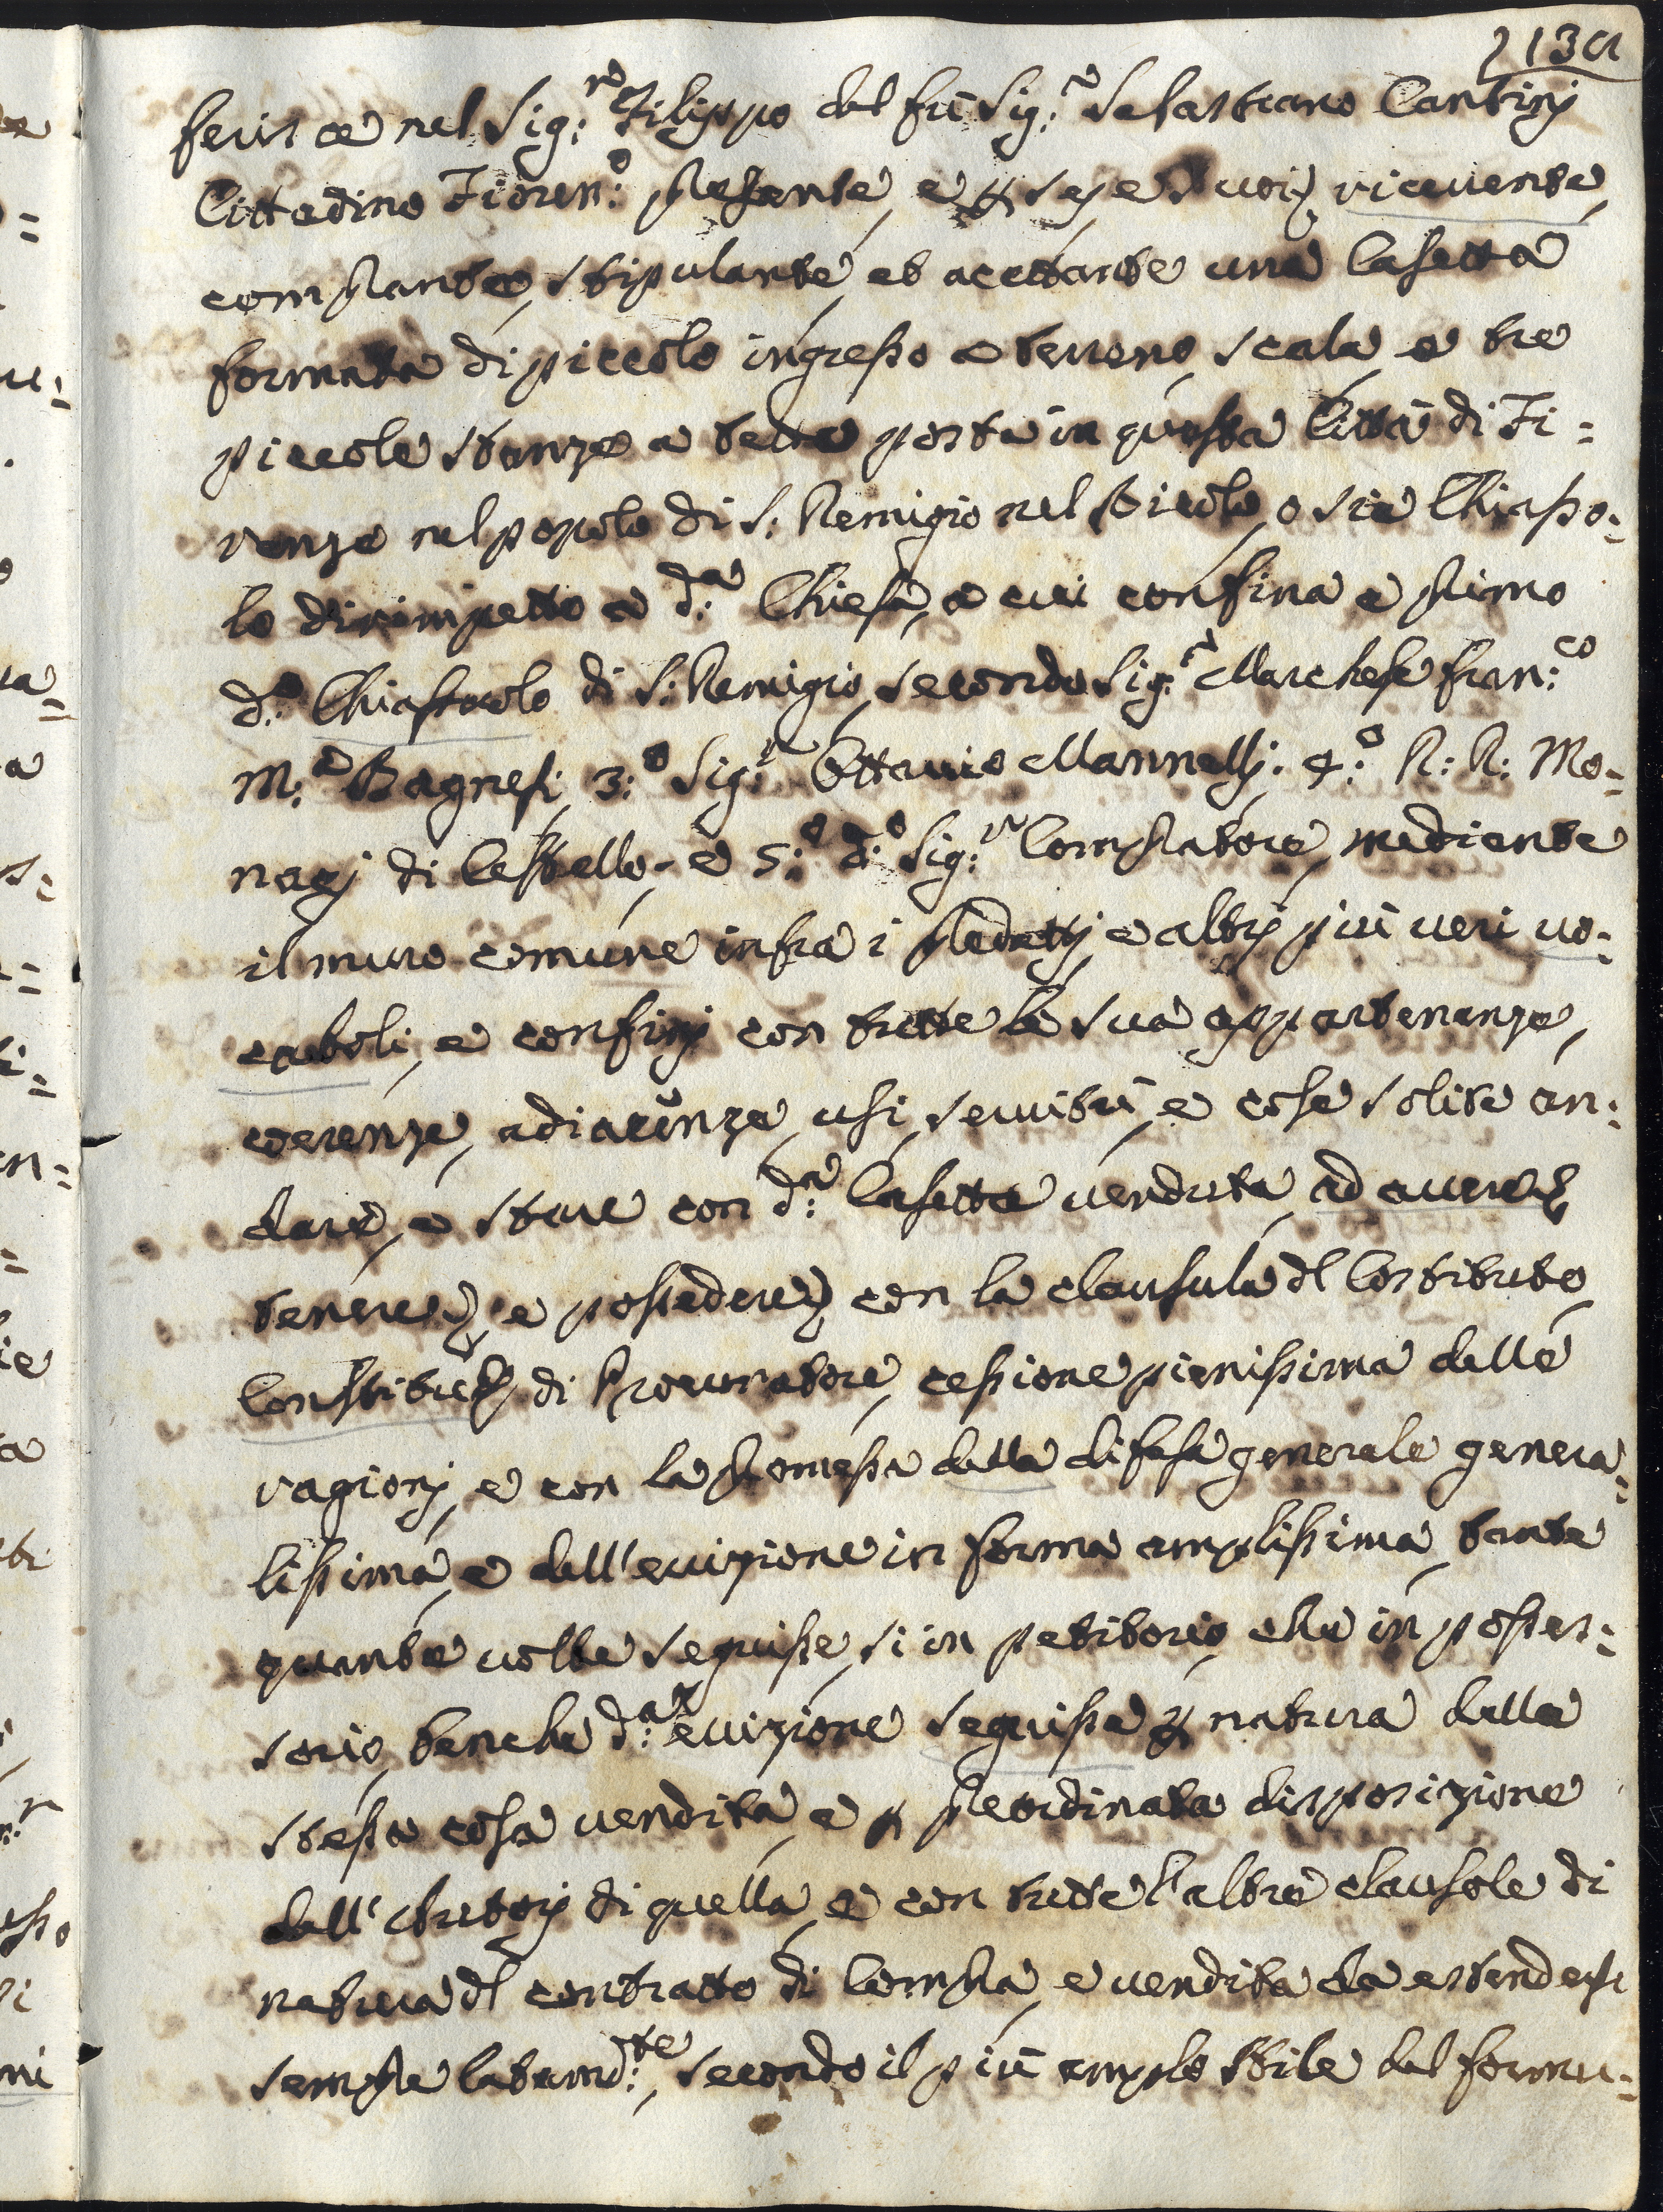 213a
ferisce nel Sig:re Filippo del fù Sig:re Sebastiano Cantinj
Cittadino Fioren:o presente, e p se, e suoi riceuente,
comprante, stipulante, et acettante una Casetta
formata di piccolo ingresso a terreno, scala, e tre
piccole stanze a tetto posta in questa Città di Fi=
renze nel popolo di S: Remigio nel Vicolo, o sia Chiasso=
lo dirimpetto a d:a Chiesa, a cui confina a primo
d:o Chiassolo di S: Remigio, secondo Sig:re Marchese Fran:co
M:a Bagnesi, 3:o Sig:re Ottauio Mannellj. 4:o R: R: Mo=
nacj di Cestello, e 5:o d:o Sig:re Compratore, mediante
il muro comune infra i predettj, e altrj più ueri uo=
caboli, e confinj con tutte le sua appartenenze,
coerenze, adiacenze, usi, seruitù, e cose solite an=
dare, e stare con d:a Casetta uenduta, ad auere
tenere, e possedere con la clausula dl Costituto,
Constituz: di Procuratore, cessione pienissima delle
ragionj, e con la promessa della difesa generale genera=
lissima, e dell'euizione in forma amplissima, tante
quante uolte seguisse, si in petitorio, che in posses=
sorio, benche d:a euizione seguisse p natura della
stessa cosa vendita, e p preordinata disposizione
dell' Autorj di quella, e con tutte l'altre clausole di
natura dl contratto di Compra, e uendita da estendersi
sempre latam:te, secondo il più amplo stile del formu=